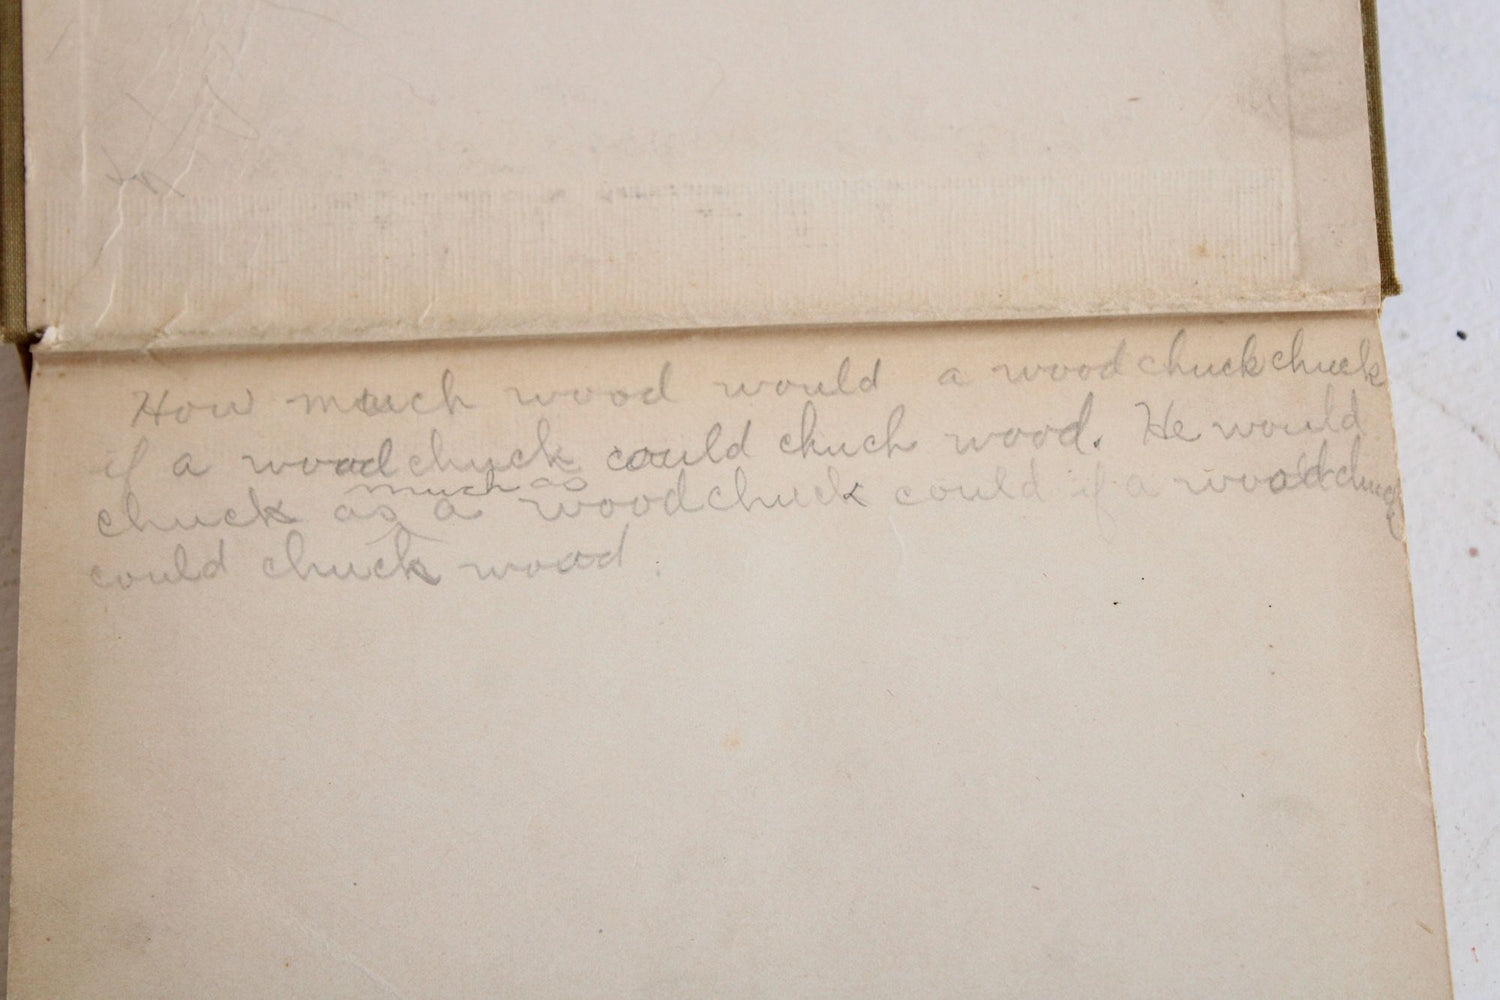 How much wood would a woodchuck chuck
if a woodchuck could chuch wood. He would
chuck as much as a woodchuck could if a woodchuck
could chuck wood.